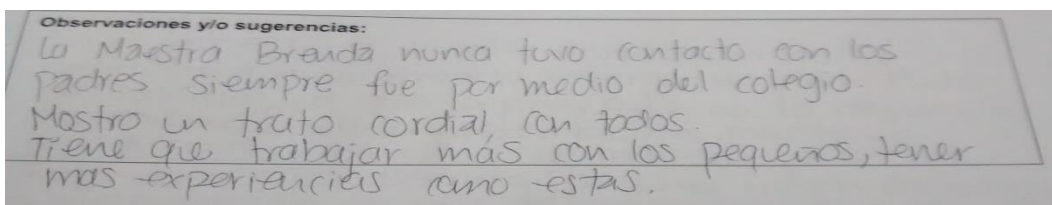 Observaciones y/o sugerencias:
La Maestra Brenda nunca tuvo contacto con los
padres siempre fue por medio del colegio.
Mostro un trato cordial, con todos.
Tiene que trabajar más con los pequeños, tener
mas experiencias como estas.